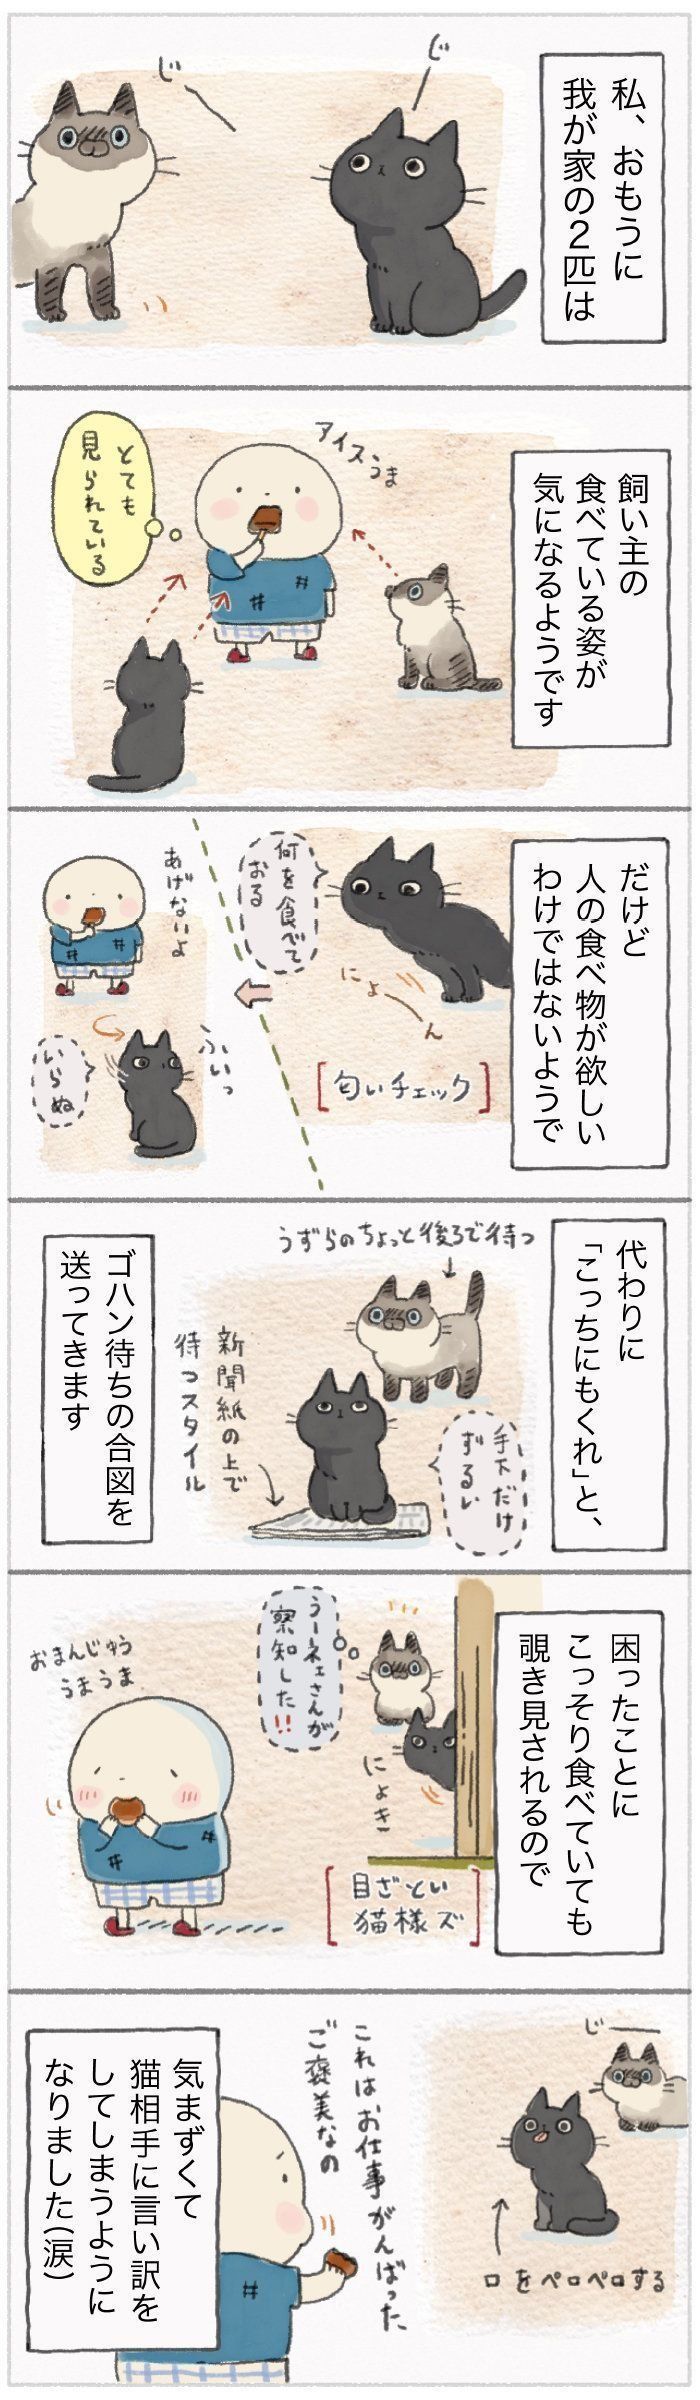 私、おもうに
我が家の２匹は
じー
じー
飼い主の
食べている姿が
気になるようです
アイスうま
とても
見られている
だけど
人の食べ物が欲しい
わけではないようで
何を食べて
おる
にょーん
[匂いチェック]
あげないよ
ふいっ
いらぬ
代わりに
「こっちにもくれ」と、
うずらのちょっと後ろで待つ
手下だけ
ずるい
新聞紙の上で
待つスタイル
ゴハン待ちの合図を
送ってきます
困ったことに
こっそり食べていても
覗き見されるので
うーネェさんが
察知した!!
にょき
[目ざとい
猫様ズ]
おまんじゅう
うまうま
じー
口をペロペロする
これはお仕事がんばった、
ご褒美なの
気まずくて
猫相手に言い訳を
してしまうように
なりました(涙)